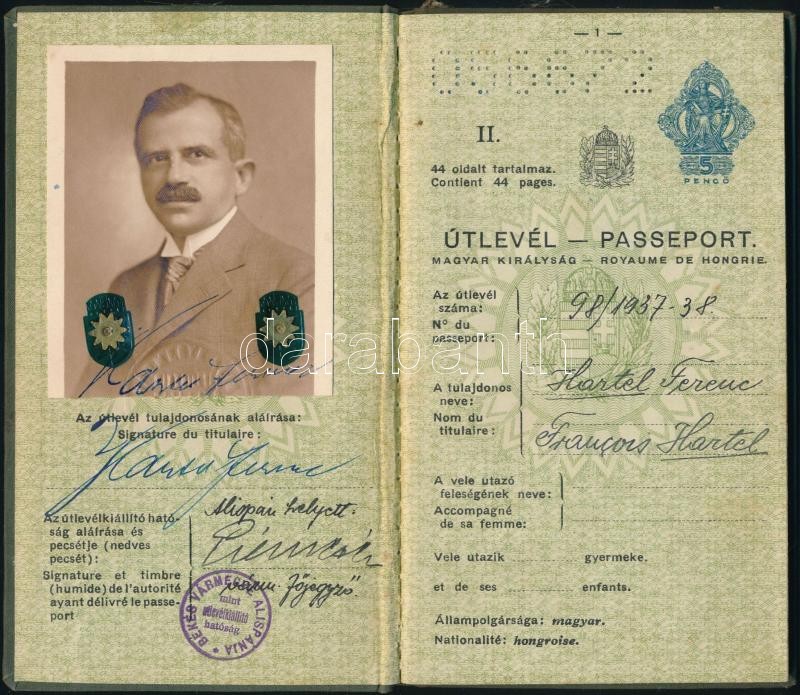 Az útlevél tulajdonosának aláírása:
Signature du titulaire:
Az útlevélkiállító ható-
ság aláírása és
pecsétje (nedves
pecsét):
Signature et timbre
(humide) de l'autorité
ayant délivré le passe-
port
Alispán helyett:
várm. főjegyző
BÉKÉS VÁRMEGYE ALISPÁNJA
mint
útlevélkiállító
hatóság
— 1 —
056672
II.
5
PENGŐ
44 oldalt tartalmaz.
Contient 44 pages.
ÚTLEVÉL — PASSEPORT.
MAGYAR KIRÁLYSÁG — ROYAUME DE HONGRIE.
Az útlevél
száma:
Nº du
passeport:
98/1937-38.
A tulajdonos
neve:
Nom du
titulaire:
Hartel Ferenc
François Hartel
A vele utazó
feleségének neve:
Accompagné
de sa femme:
Vele utazik gyermeke.
et de ses enfants.
Állampolgársága: magyar.
Nationalité: hongroise.
darabanth